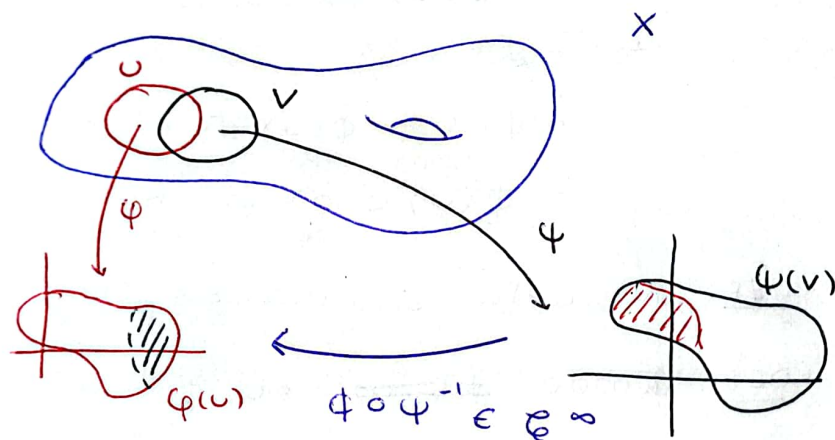 X
U
V
φ
ψ
ψ(V)
φ(U)
ϕ ∘ ψ⁻¹ ∈ 𝒞^∞